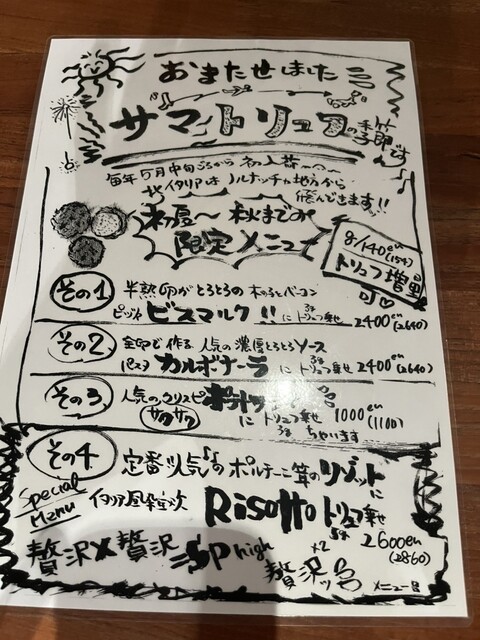 おまたせしました
サマートリュフの季節です
毎年5月中旬ごろから初入荷〜〜
北イタリアはノルチャ地方から
飛んできます!!
初夏〜秋までの
限定メニュー
トリュフ増量
可♡
その1 半熟卵がとろとろの きのことベーコン
ピッツァ ビスマルク!! に トリュフ乗せ 2400en (2640)
その2 全卵で作る 人気の濃厚とろとろソース
パスタ カルボナーラ に トリュフ乗せ 2400en (2640)
その3 人気のクリスピーポテト
サクサク に トリュフ乗せ 1000en (1100)
ちゃいます
その4 定番で人気のポルチーニ茸のリゾットに
Special
Menu
イタリア風
Risotto トリュフ乗せ
2600en
(2860)
贅沢×贅沢
贅沢